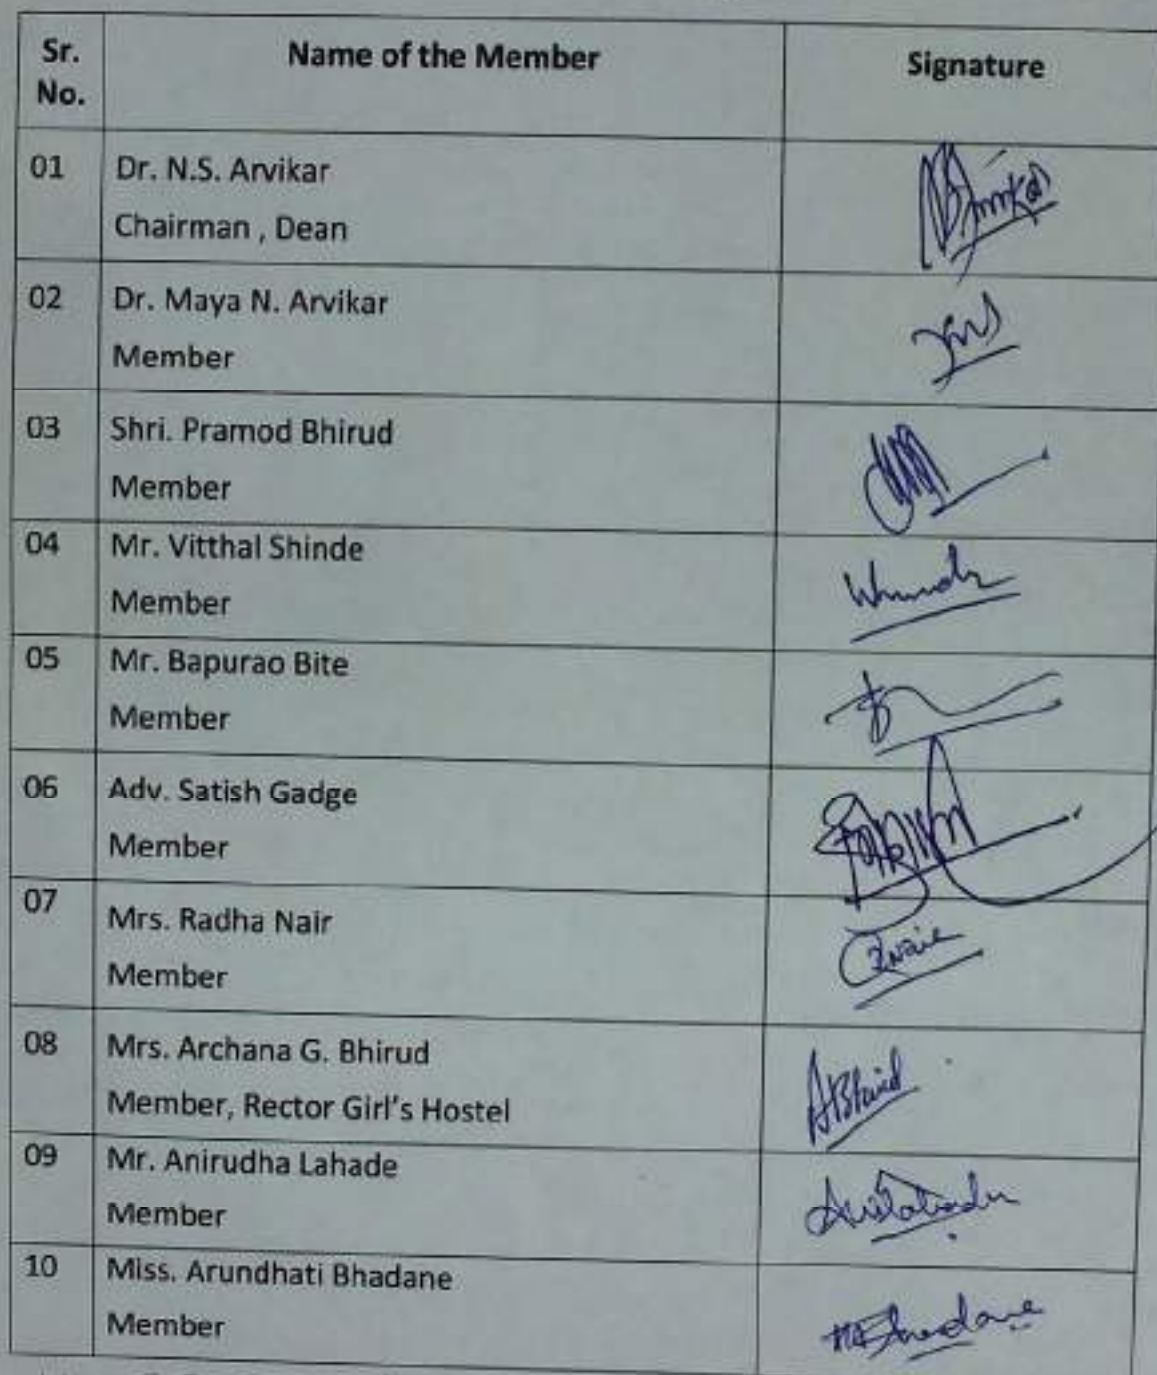 Sr. Name of the Member Signature
No.
01 Dr. N.S. Arvikar
Chairman , Dean
02 Dr. Maya N. Arvikar
Member
03 Shri. Pramod Bhirud
Member
04 Mr. Vitthal Shinde
Member
05 Mr. Bapurao Bite
Member
06 Adv. Satish Gadge
Member
07 Mrs. Radha Nair
Member
08 Mrs. Archana G. Bhirud
Member, Rector Girl's Hostel
ABhirud
09 Mr. Anirudha Lahade
Member
10 Miss. Arundhati Bhadane
Member